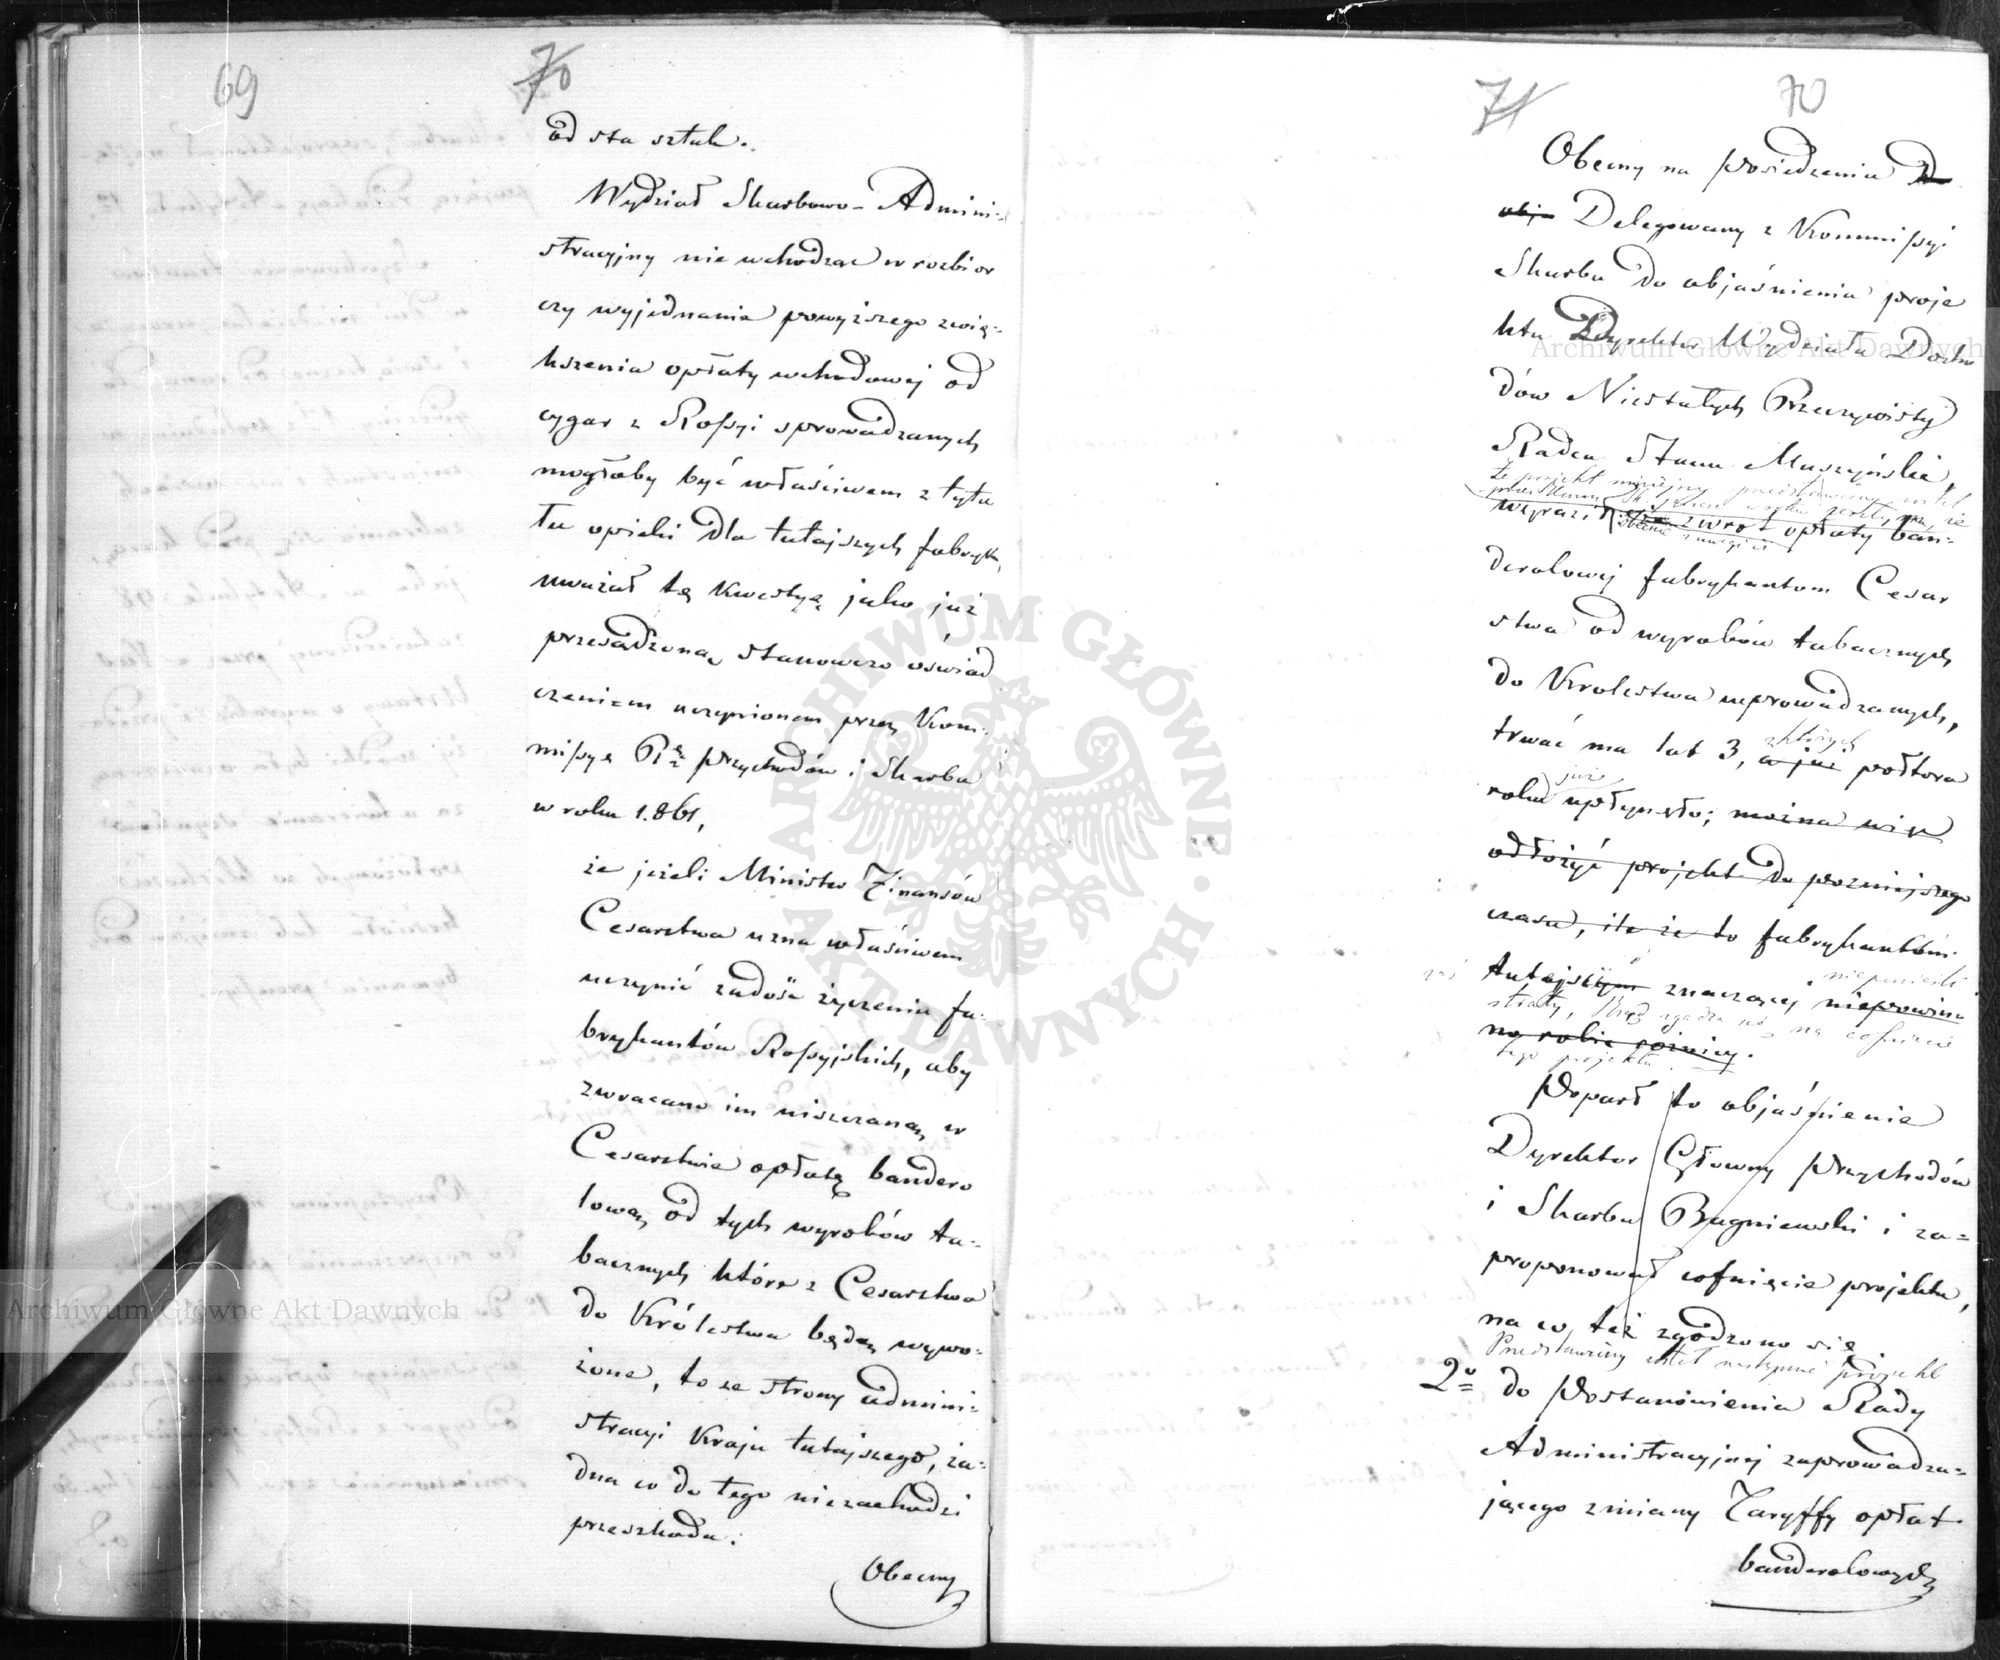 69
70
od sta sztuk.
Wydział Skarbowo-Admini-
stracyjny nie wchodząc w rozbiór
czy wyjednanie powyższego zwię-
kszenia opłaty wchodowej od
cygar z Rossyi sprowadzanych
mogłoby być właściwem z tytu
łu opieki dla tutajszych fabryk,
uważał tę kwestyą jako już
przesądzoną stanowczo oświad
czeniem uczynionem przez Kom-
missyę Rz. Przychodów i Skarbu
w roku 1861,
że jeżeli Minister Finansów
Cesarstwa uzna właściwem
uczynić zadość życzeniu fa-
brykantów Rossyjskich, aby
zwracano im uiszczaną w
Cesarstwie opłatę bandero
lową od tych wyrobów ta-
bacznych które z Cesarstwa
do Królestwa będą wywo-
żone, to ze strony admini-
stracyi Kraju tutajszego, ża-
dna co do tego niezachodzi
przeszkoda.
Obecny
71
70
Obecny na posiedzeniu D
obja Delegowany z Kommissyi
Skarbu do objaśnienia proje
ktu Dyrektor Wydziału Docho
dów Niestałych Rzeczywisty
Radca Stanu Muszyński,
że projekt niniejszy przedstawiony został
wyraził że zwrot opłaty ban-
derolowej fabrykantom Cesar
stwa od wyrobów tabacznych
do Krolestwa wprowadzanych,
trwać ma lat 3, a już z których półtora
roku już upłynęło; można więc
odłożyć projekt do pozniejszego
czasu, ile że to fabrykantom
zaś tutejszym znaczącej niepowin
straty, zgadza się na cofnięcie
no robić róznicy.
tego projektu.
Poparł to objaśnienie
Dyrektor Główny Przychodów
i Skarbu Bagniewski i za-
proponował cofnięcie projektu,
na co też zgodzono się.
Przedstawiony został następnie projekt
2o do Postanowienia Rady
Administracyjnej zaprowadza-
jącego zmiany Taryffy opłat
banderolowych
Archiwum Główne Akt Dawnych
Archiwum Główne Akt Dawnych
ARCHIWUM GŁÓWNE AKT DAWNYCH